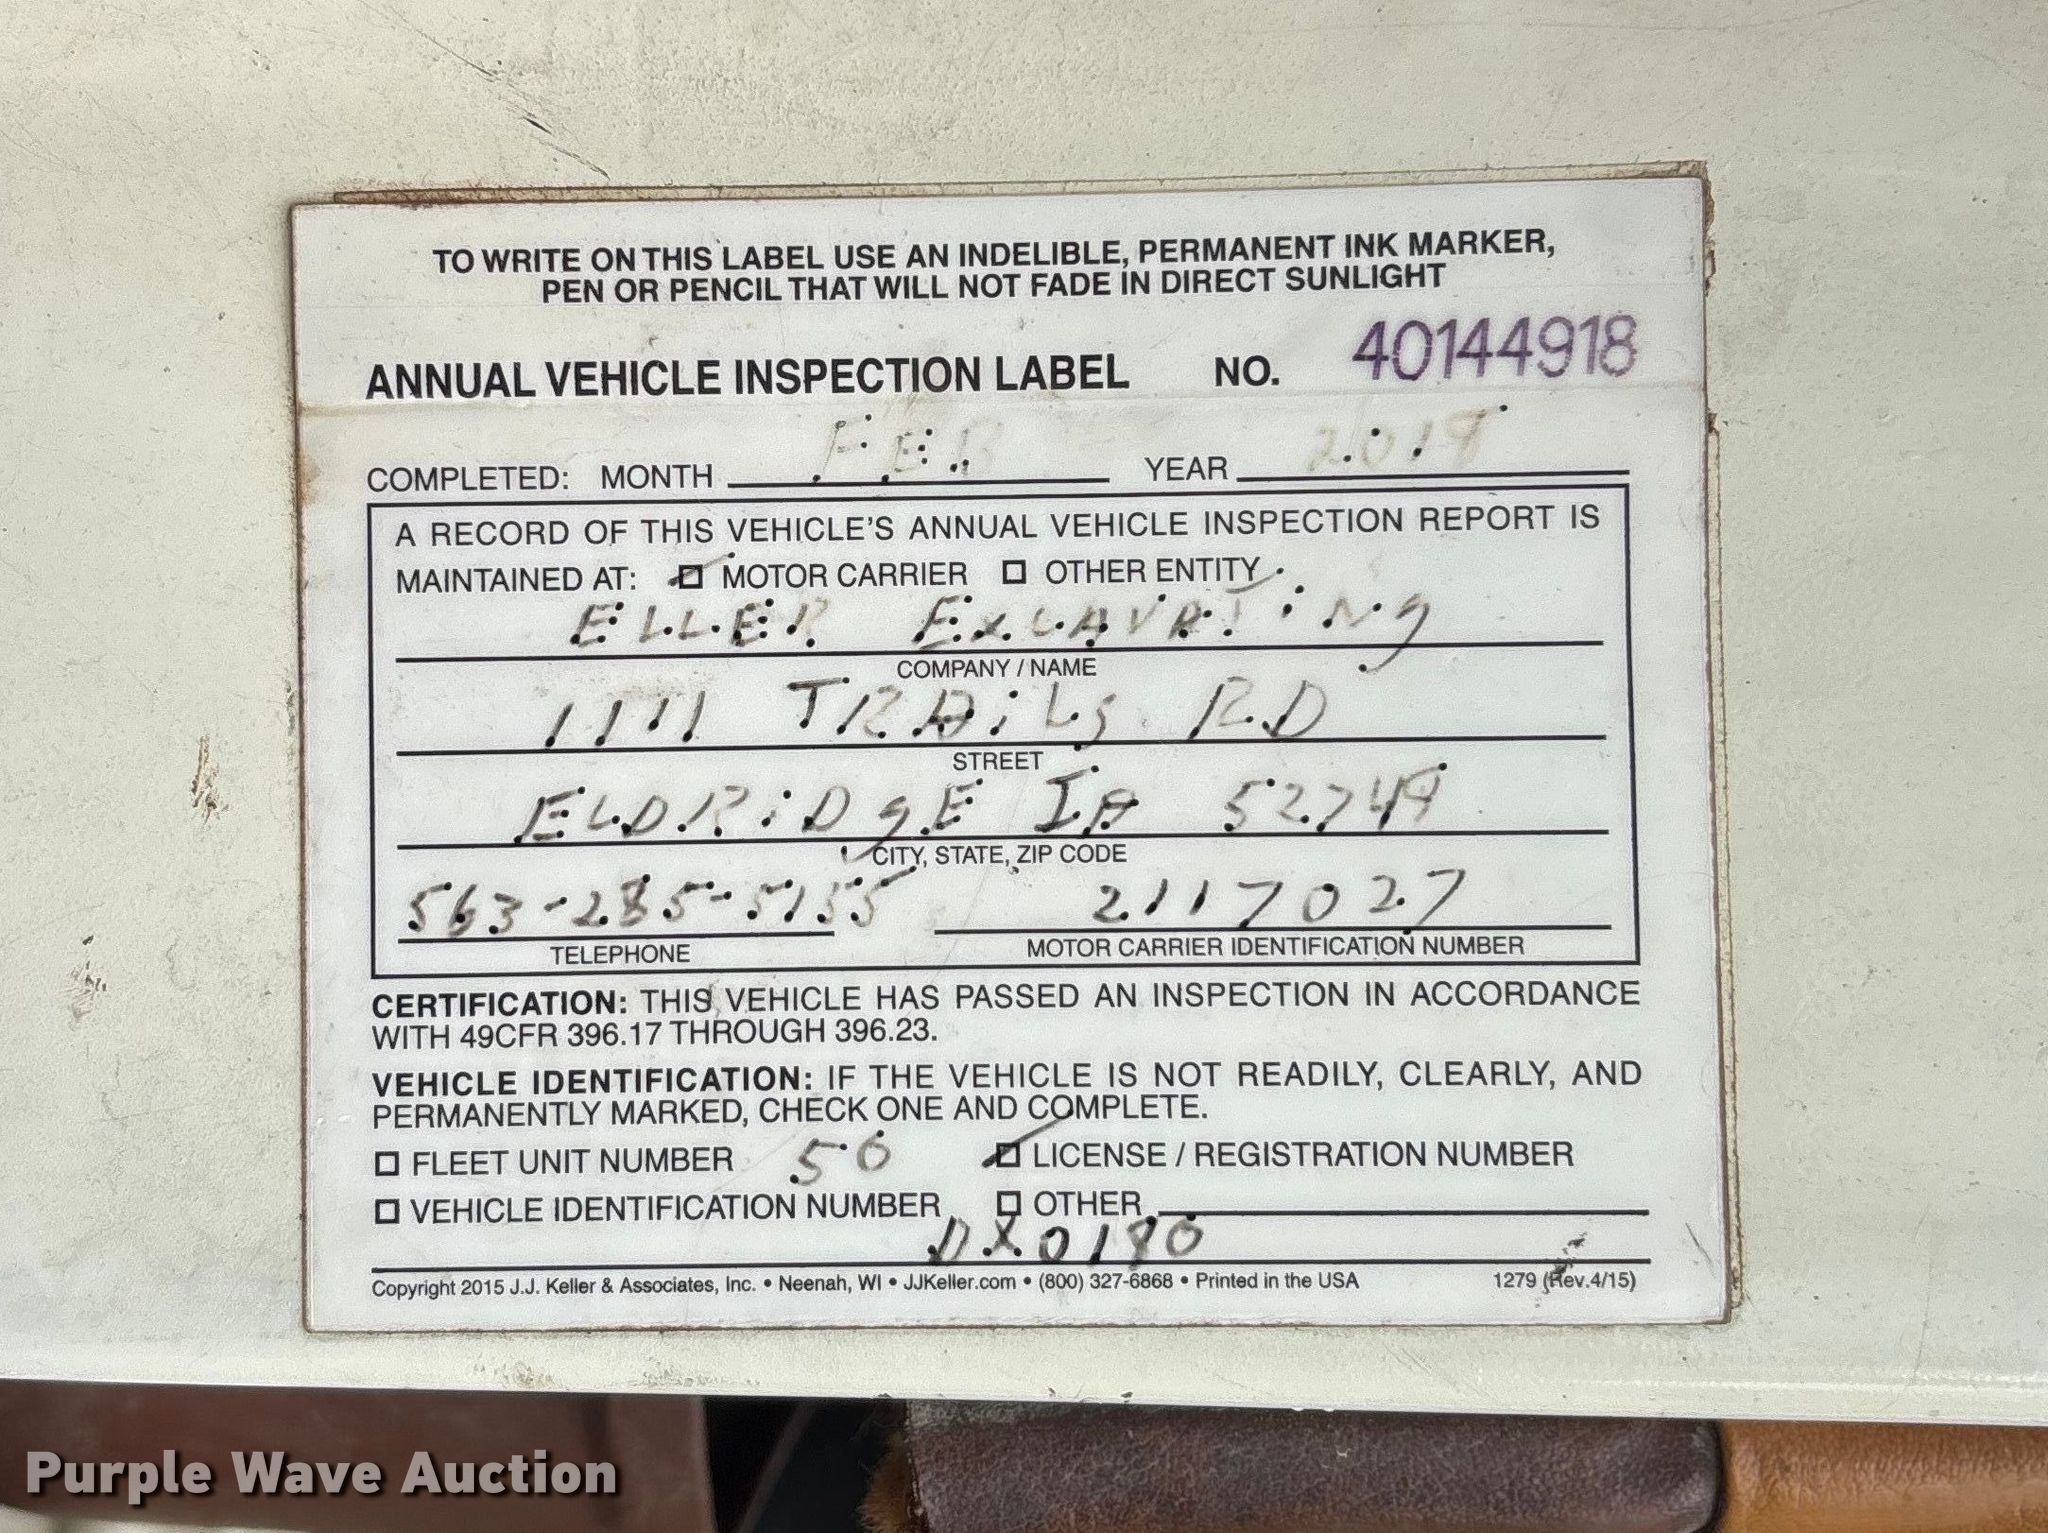 TO WRITE ON THIS LABEL USE AN INDELIBLE, PERMANENT INK MARKER,
PEN OR PENCIL THAT WILL NOT FADE IN DIRECT SUNLIGHT
ANNUAL VEHICLE INSPECTION LABEL NO. 40144918
COMPLETED: MONTH FEB YEAR
A RECORD OF THIS VEHICLE'S ANNUAL VEHICLE INSPECTION REPORT IS
MAINTAINED AT: MOTOR CARRIER OTHER ENTITY
ELLER EXCAVATiNg
COMPANY / NAME
1111 TRAiLS RD
STREET
ELDRiDgE IA 52748
CITY, STATE, ZIP CODE
563-285-5155 2117027
TELEPHONE MOTOR CARRIER IDENTIFICATION NUMBER
CERTIFICATION: THIS VEHICLE HAS PASSED AN INSPECTION IN ACCORDANCE
WITH 49CFR 396.17 THROUGH 396.23.
VEHICLE IDENTIFICATION: IF THE VEHICLE IS NOT READILY, CLEARLY, AND
PERMANENTLY MARKED, CHECK ONE AND COMPLETE.
FLEET UNIT NUMBER 50 LICENSE / REGISTRATION NUMBER
VEHICLE IDENTIFICATION NUMBER OTHER
Copyright 2015 J.J. Keller & Associates, Inc. • Neenah, WI • JJKeller.com • (800) 327-6868 • Printed in the USA 1279 (Rev.4/15)
Purple Wave Auction